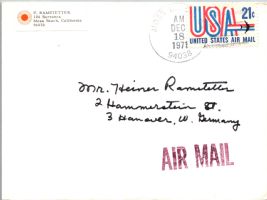 E. RAMSTETTER
Moss Beach, California
94038
AM
DEC
18
1971
94038
USA 21c
UNITED STATES AIR MAIL
Mr. Heiner Ramstetter
2 Hammerstein St.
3 Hanover, W. Germany
AIR MAIL